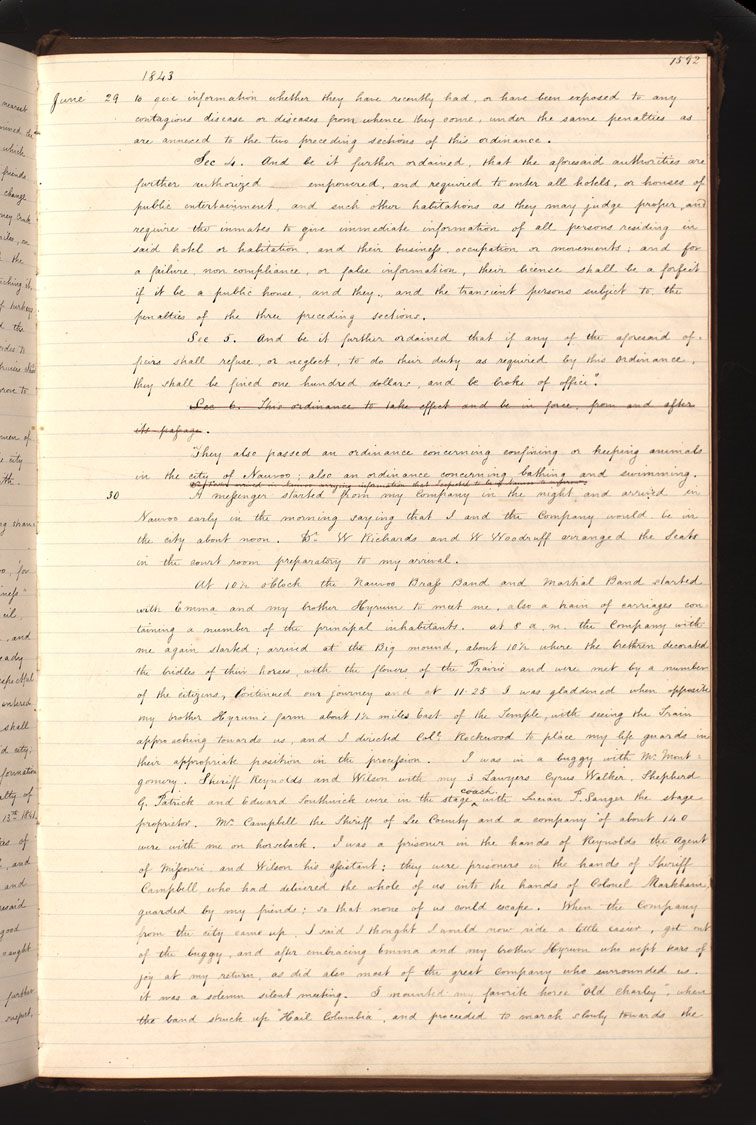 1592
1843
June 29 to give information whether they have recently had, or have been exposed to any
contagious disease or diseases from whence they come, under the same penalties as
are annexed to the two preceding sections of this ordinance.
Sec 4. And be it further ordained, that the aforesaid authorities are
further authorized empowered, and required to enter all hotels, or houses of
public entertainment, and such other habitations as they may judge proper, and
require the inmates to give immediate information of all persons residing in
said hotel or habitation, and their business, occupation or movements; and for
a failure, non compliance, or false information, their license shall be a forfeit
if it be a public house, and they, and the transient persons subject to the
penalties of the three preceding sections.
Sec 5. And be it further ordained that if any of the aforesaid of-
ficers shall refuse, or neglect, to do their duty as required by this ordinance,
they shall be fined one hundred dollars, and be broke of office".
Sec 6. This ordinance to take effect and be in force, from and after
its passage.
They also passed an ordinance concerning confining or keeping animals
in the city of Nauvoo; also an ordinance concerning bathing and swimming.
30 A messenger started from my Company in the night and arrived in
Nauvoo early in the morning saying that I and the Company would be in
the city about noon. Dr. W Richards and W Woodruff arranged the Seats
in the court room preparatory to my arrival.
At 10½ o'Clock the Nauvoo Brass Band and Martial Band started
with Emma and my brother Hyrum to meet me, also a train of carriages con
taining a number of the principal inhabitants. at 8 a.m. the Company with
me again started; arrived at the Big mound, about 10½ where the brethren decorated
the bridles of their horses, with the flowers of the Prairie and were met by a number
of the citizens, Continued our journey and at 11.25 I was gladdened when opposite
my brother Hyrum's farm about 1½ miles East of the Temple, with seeing the Train
approaching towards us, and I directed Colⁿ Rockwood to place my life guards in
their appropriate position in the procession. I was in a buggy with Mr Mont=
gomery. Sheriff Reynolds and Wilson with my 3 Lawyers Cyrus Walker, Shepherd
coach
G. Patrick and Edward Southwick were in the stage ^ with Lucian P. Sanger the stage
proprietor. Mr Campbell the Sheriff of Lee County and a company of about 140
were with me on horseback. I was a prisoner in the hands of Reynolds the Agent
of Missouri, and Wilson his assistant: they were prisoners in the hands of Sheriff
Campbell who had delivered the whole of us into the hands of Colonel Markham,
guarded by my friends: so that none of us could escape. When the Company
from the city came up, I said I thought I would now ride a little easier, got out
of the buggy, and after embracing Emma and my brother Hyrum who wept tears of
joy at my return, as did also most of the great Company who surrounded us.
it was a solemn silent meeting. I mounted my favorite horse "Old Charley", when
the band struck up "Hail Columbia", and proceeded to march slowly towards the